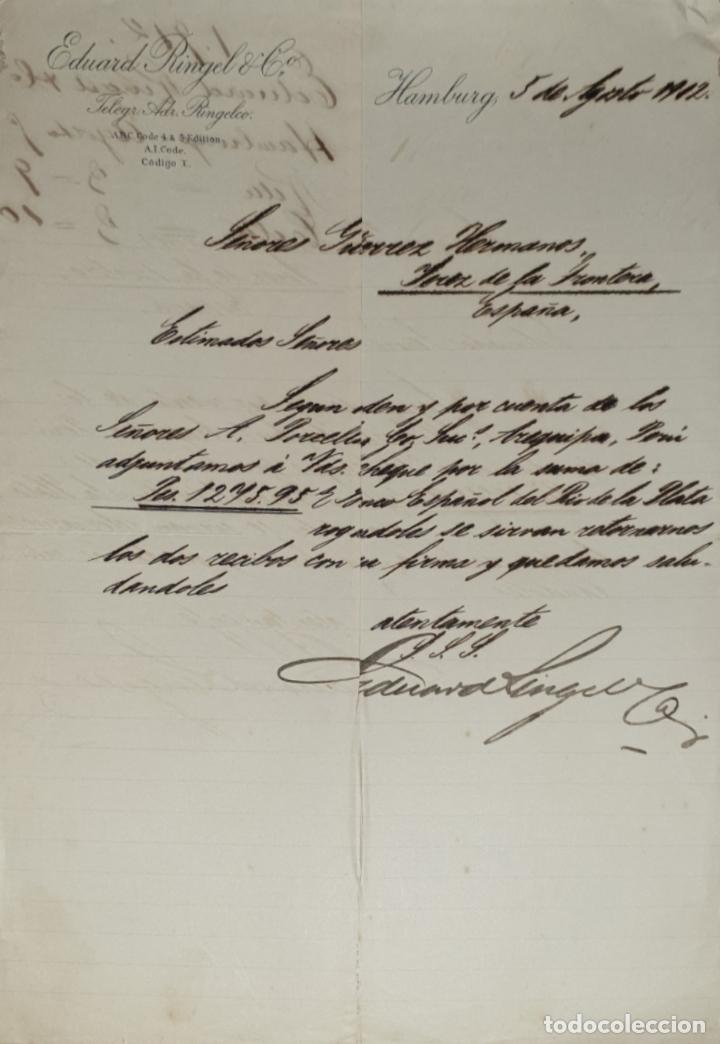 Eduard Ringel & Co.
Telegr. Adr. Ringelco.
A.B.C. Code 4 & 5 Edition.
A.I. Code.
Código X.
Hamburg, 5 de Agosto 1912.
Señores Gutierrez Hermanos,
Jerez de la Frontera,
España,
Estimados Señores
Segun orden y por cuenta de los
Señores A. Porcella Suc., Arequipa, Perú
adjuntamos á Vds. cheque por la suma de:
Pes. 1245.95 Banco Español del Rio de la Plata
rogandoles se sirvan retornarnos
los dos recibos con su firma y quedamos salu-
dandoles
atentamente
S. S. S.
Eduard Ringel & Co
todocoleccion
todocoleccion.net